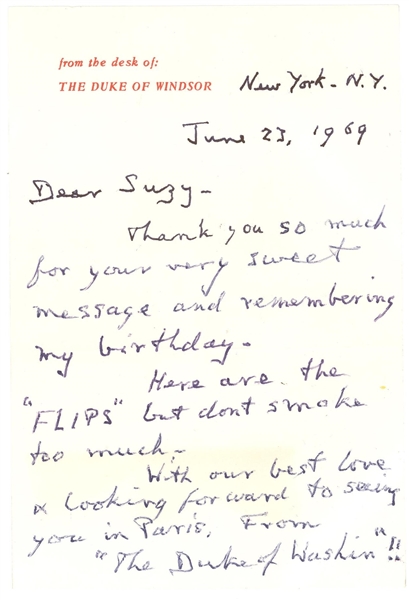 from the desk of:
THE DUKE OF WINDSOR
New York - N.Y.
June 23, 1969
Dear Suzy -
Thank you so much
for your very sweet
message and remembering
my birthday -
Here are the
"FLIPS" but dont smoke
too much -
With our best love
& looking forward to seeing
you in Paris, From
"The Duke of Washin"!!